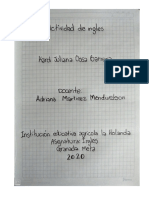 Actividad de ingles
Juliana
Docente:
Adriana Martinez
Institución educativa agricola la Holanda
Asignatura: Ingles
Granada Meta
2020